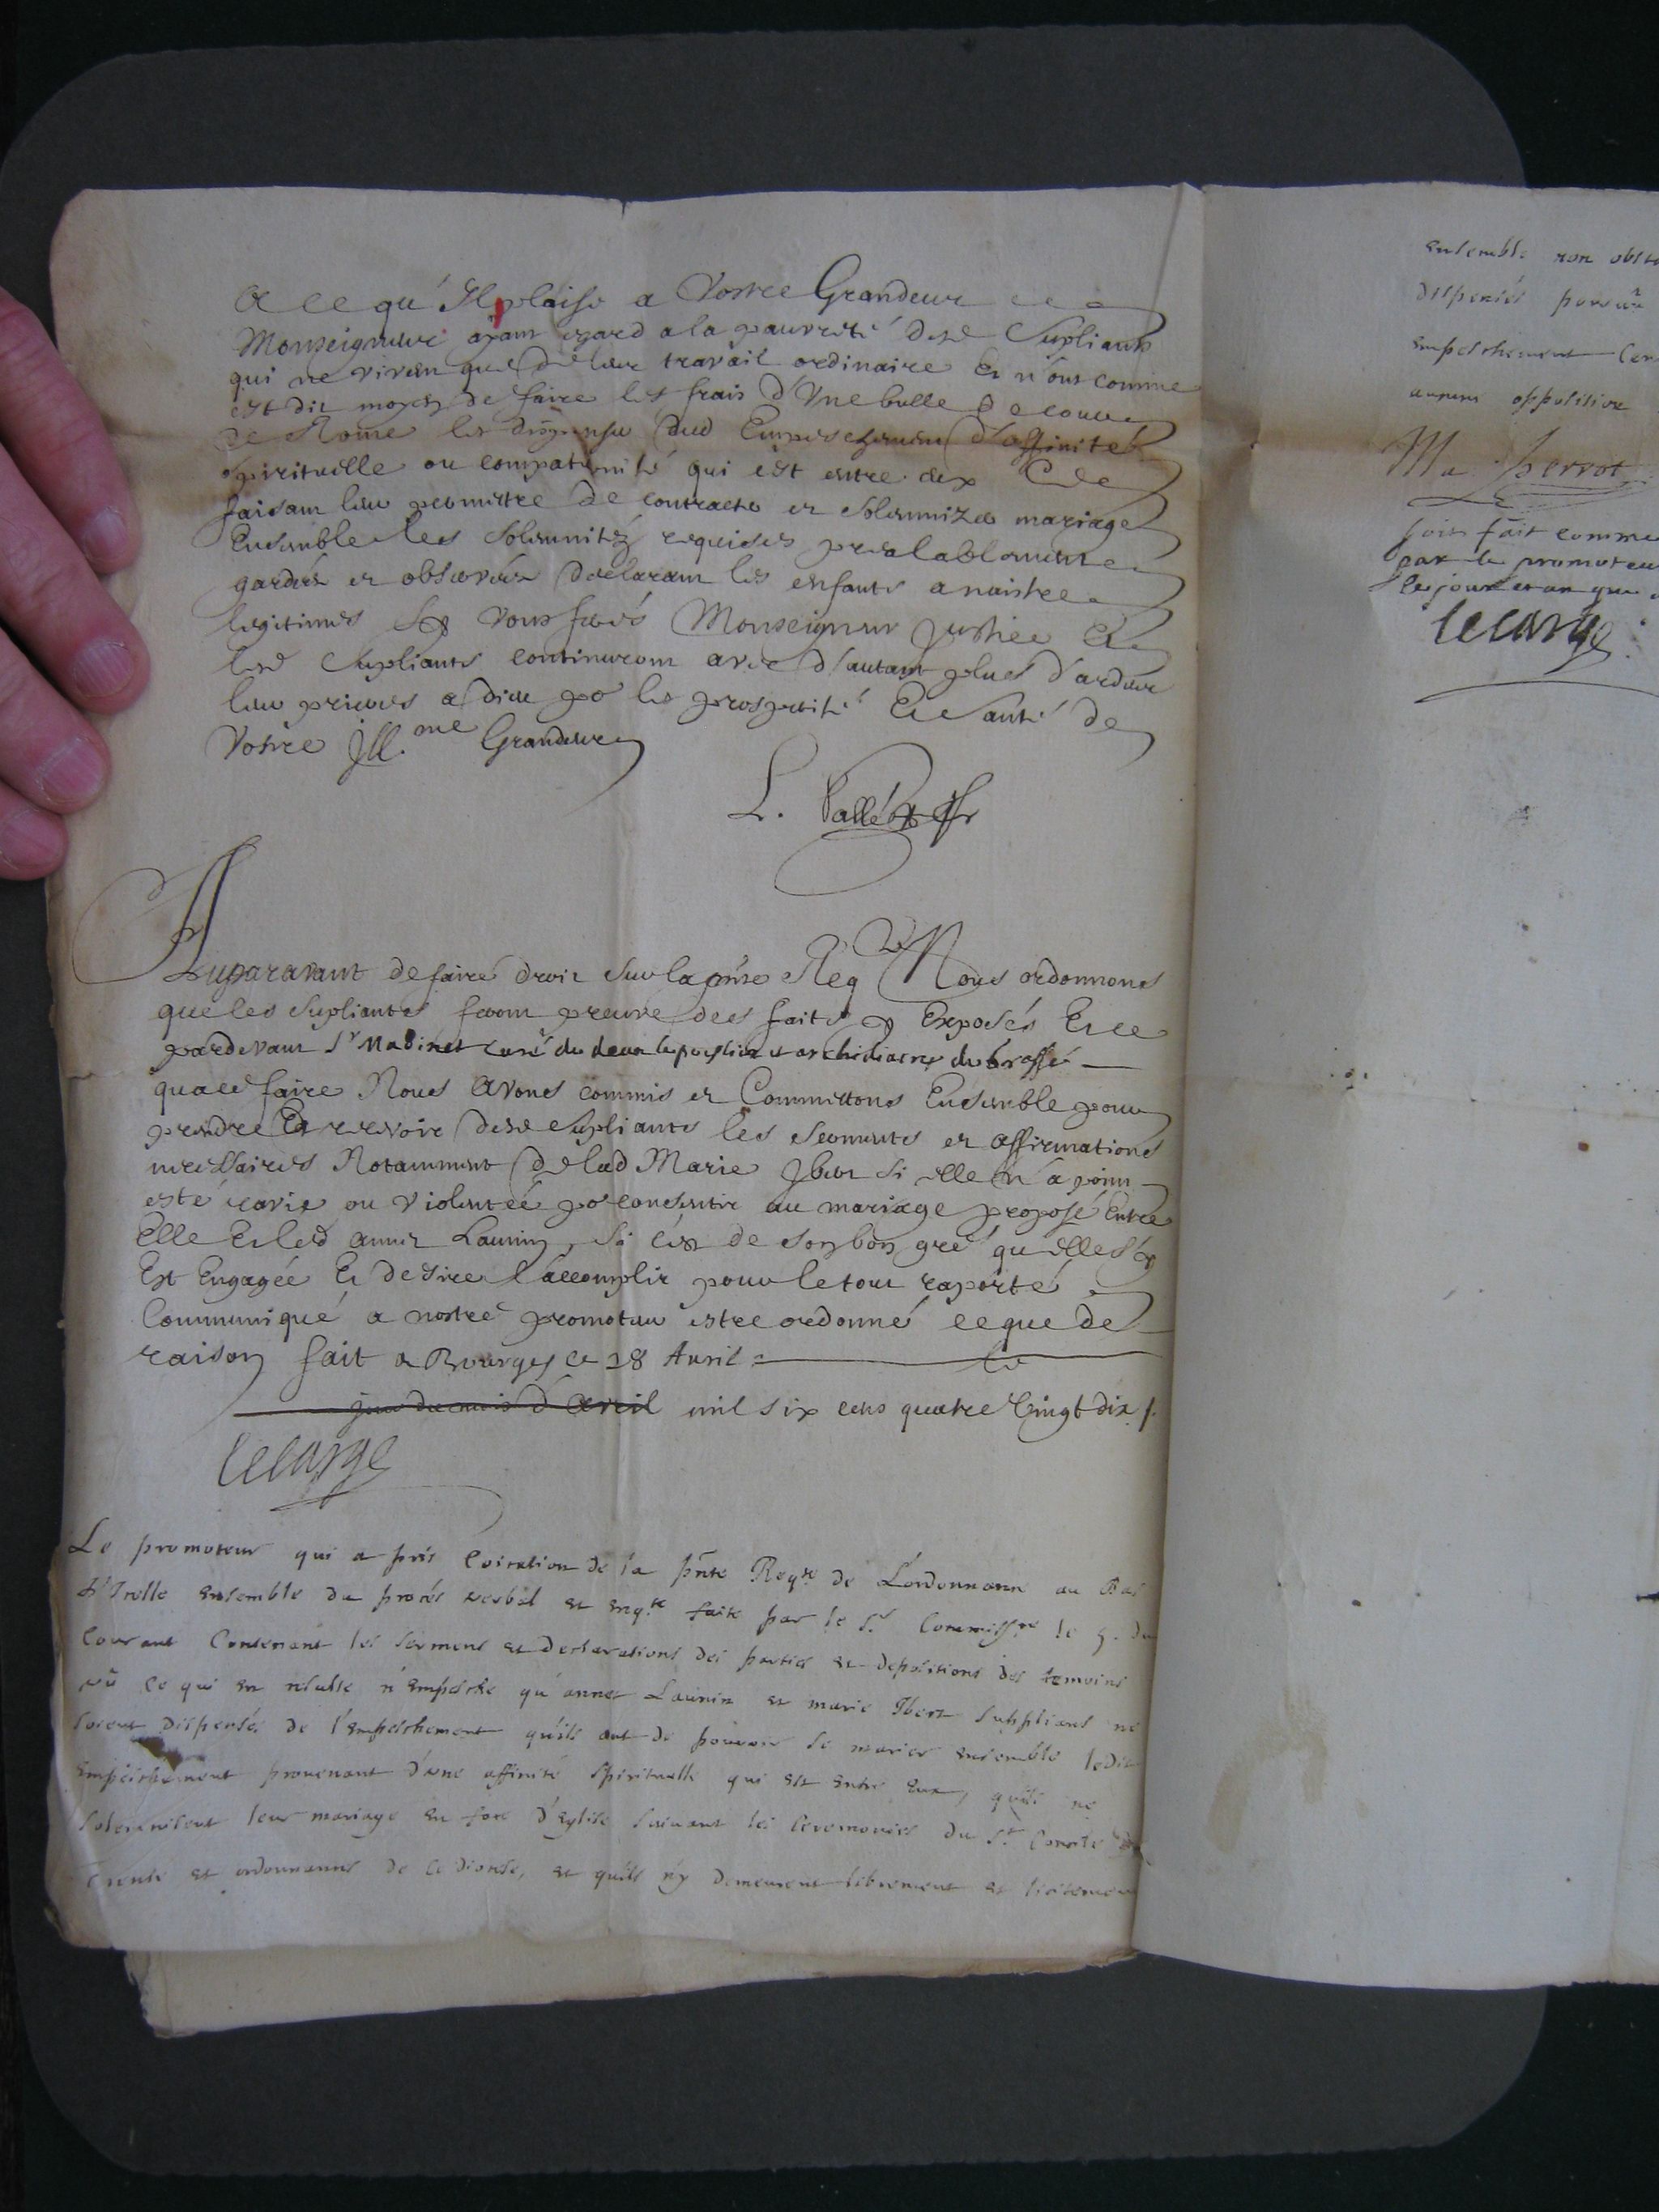 A ce qu'Il plaise a Vostre Grandeur
Monseigneur ayant egard a la pauvreté desd Supliants
qui ne vivent que de leur travail ordinaire Et n'ont comme
est dit moyen de faire les frais d'Une bulle De cour
de Rome les dispenser dud Empeschement d'affinité
spirituelle ou compaternité qui est entre eux
faisant leur permettre De contracter et Solemnizer mariage
Ensemble les Solemnitéz requises prealablement
gardées et observées declarant les enfants a naistre
legitimes Et vous ferés Monseigneur Justice Et
lesd Supliants continueront avec d'autant plus d'ardeur
leur prieres a dieu po' les prosperité Et santé de
Vostre Ill.me Grandeur
L. Vallée
Auparavant de faire droit sur la pnte Req Nous ordonnons
que les Supliants feront preuve des faits y Exposés Et ce
pardevant Sr Mabinet curé du et archidiacre du
qua ce faire Nous Avons commis et Committons Ensemble pour
prendre Et recevoir desd Supliants les serments et affirmations
necessaires Notamment de lad Marie Jbert si elle n'a point
esté ravie ou violentée po' consentir au mariage proposé Entre
Elle Et led annet Launin, Si c'est de son bon gré qu'elle s'y
Est Engagée Et desire l'accomplir pour le tout raporté
Communiqué a nostre promoteur estre ordonné ce que de
raison fait a Bourges ce 18 Avril le
jour du mois d'Avril mil six cens quatre Vingt dix /.
lelarge
Le promoteur qui a pris de la pnte Reqte de L'ordonnance au Bas
D'Icelle ensemble du procés verbal et enqte faite par le Sr Commissre le 5. du
Courant Contenant les serments et declarations des parties et depositions des temoins
vû ce qui en resulte n'Empesche qu'annet Launin et marie Jbert suppliants ne
soient dispensés de l'empeschement qu'ils ont de pouvoir se marier ensemble ledit
Empeschement provenant d'une affinité spirituelle qui est entre Eux, qu'ils ne
solemnisent leur mariage en face d'Eglise suivant les Ceremonies du St Concile de
trente et ordonnances de ce diocese, et qu'ils n'y demeurent librement et licitement
ensemble non obsta
dispensés pourvû
empeschement
aucune opposition
Ma perrot
soit fait comme
par le promoteur
les jour et an que
lelarge